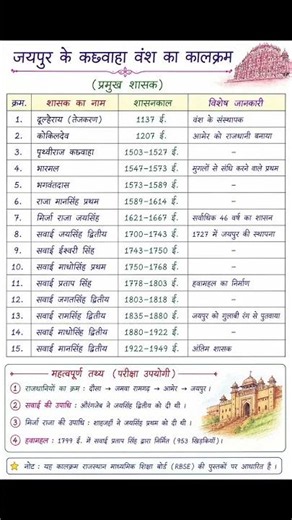 जयपुर के कछवाहा वंश का कालक्रम
(प्रमुख शासक)
क्रम. शासक का नाम शासनकाल विशेष जानकारी
1. दूल्हेराय (तेजकरण) 1137 ई. वंश के संस्थापक
2. कोकिलदेव 1207 ई. आमेर को राजधानी बनाया
3. पृथ्वीराज कछवाहा 1503-1527 ई. –
4. भारमल 1547-1573 ई. मुगलों से संधि करने वाले प्रथम
5. भगवंतदास 1573-1589 ई. –
6. राजा मानसिंह प्रथम 1589-1614 ई. –
7. मिर्जा राजा जयसिंह 1621-1667 ई. सर्वाधिक 46 वर्ष का शासन
8. सवाई जयसिंह द्वितीय 1700-1743 ई. 1727 में जयपुर की स्थापना
9. सवाई ईश्वरी सिंह 1743-1750 ई. –
10. सवाई माधोसिंह प्रथम 1750-1768 ई. –
11. सवाई प्रताप सिंह 1778-1803 ई. हवामहल का निर्माण
12. सवाई जगतसिंह द्वितीय 1803-1818 ई. –
13. सवाई रामसिंह द्वितीय 1835-1880 ई. जयपुर को गुलाबी रंग से पुतवाया
14. सवाई माधोसिंह द्वितीय 1880-1922 ई. –
15. सवाई मानसिंह द्वितीय 1922-1949 ई. अंतिम शासक
महत्वपूर्ण तथ्य (परीक्षा उपयोगी)
1 राजधानियों का क्रम : दौसा → जमवा रामगढ़ → आमेर → जयपुर।
2 सवाई की उपाधि : औरंगजेब ने जयसिंह द्वितीय को दी थी।
3 मिर्जा राजा की उपाधि : शाहजहाँ ने जयसिंह प्रथम को दी थी।
4 हवामहल : 1799 ई. में सवाई प्रताप सिंह द्वारा निर्मित (953 खिड़कियाँ)।
नोट : यह कालक्रम राजस्थान माध्यमिक शिक्षा बोर्ड (RBSE) की पुस्तकों पर आधारित है।